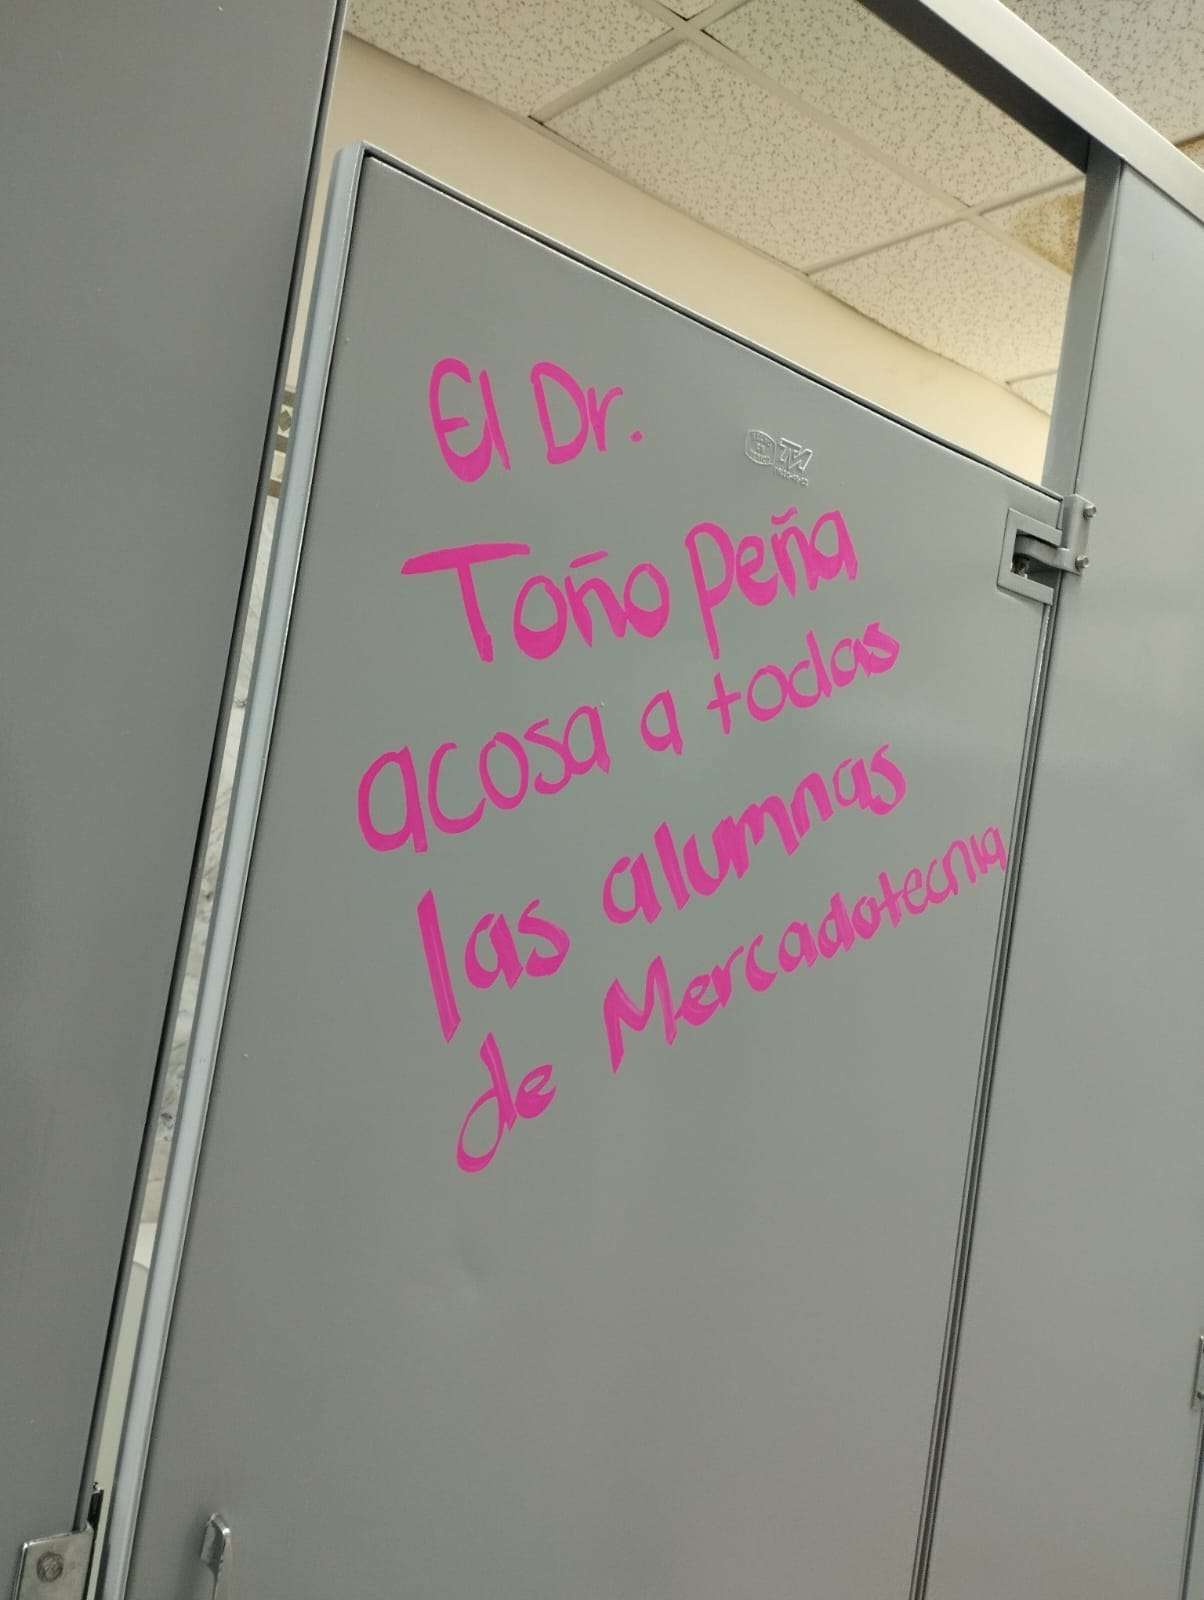 El Dr.
Toño Peña
acosa a todas
las alumnas
de Mercadotecnia